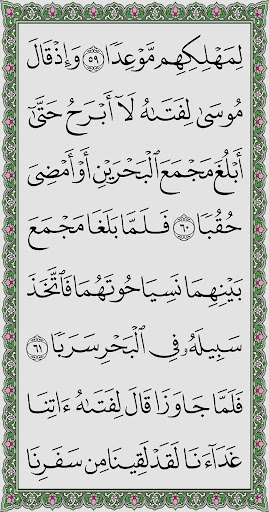 لِمَهْلِكِهِم مَّوْعِدًا ٥٩ وَإِذْ قَالَ
مُوسَىٰ لِفَتَىٰهُ لَآ أَبْرَحُ حَتَّىٰٓ
أَبْلُغَ مَجْمَعَ ٱلْبَحْرَيْنِ أَوْ أَمْضِىَ
حُقُبًا ٦٠ فَلَمَّا بَلَغَا مَجْمَعَ
بَيْنِهِمَا نَسِيَا حُوتَهُمَا فَٱتَّخَذَ
سَبِيلَهُۥ فِى ٱلْبَحْرِ سَرَبًا ٦١
فَلَمَّا جَاوَزَا قَالَ لِفَتَىٰهُ ءَاتِنَا
غَدَآءَنَا لَقَدْ لَقِينَا مِن سَفَرِنَا